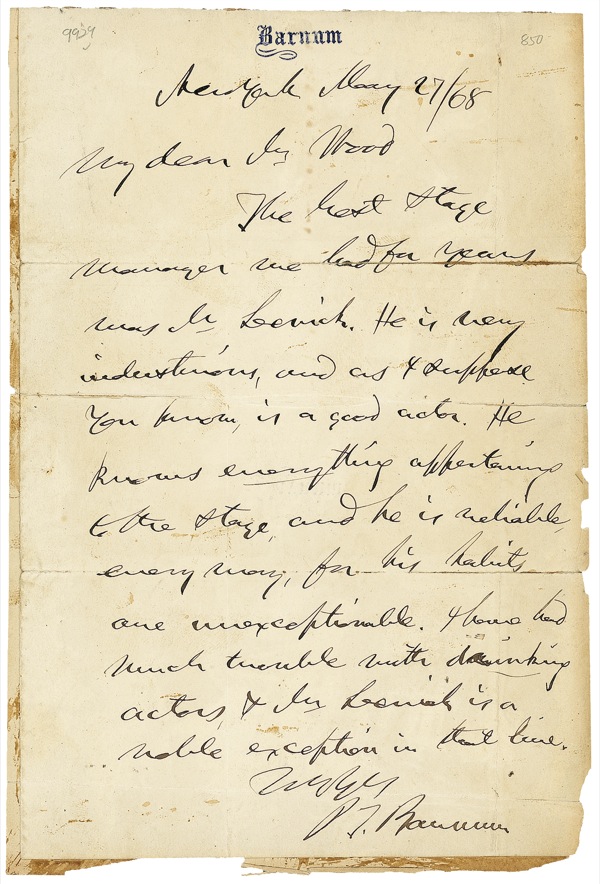 9939
850
Barnum
New York May 27/68
My dear Mr Wood
The best stage
manager we had for years
was Mr Leevick. He is very
industrious, and as I suppose
you know, is a good actor. He
knows everything appertaining
to the stage, and he is reliable,
every way, for his habits
are unexceptionable. I have had
much trouble with drinking
actors, & Mr Leevick is a
noble exception in that line.
P T. Barnum